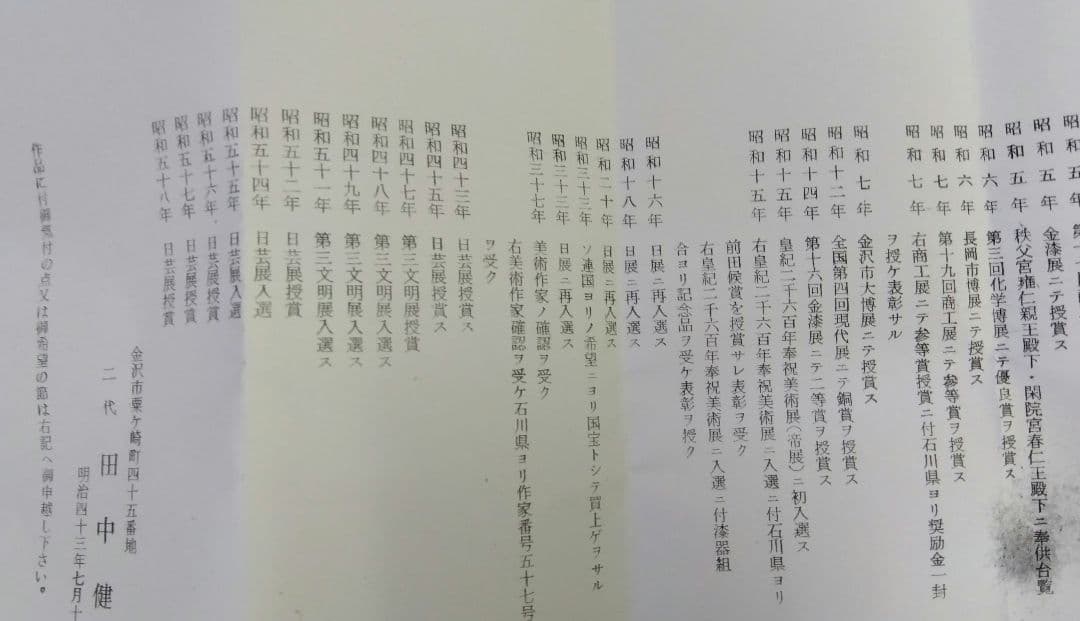 昭和五年
昭和五年 金漆展ニテ授賞ス
昭和五年 秩父宮雍仁親王殿下・閑院宮春仁王殿下ニ奉供台覧
昭和六年 第三回化学博展ニテ優良賞ヲ授賞ス
昭和六年 長岡市博展ニテ授賞ス
昭和七年 第十九回商工展ニテ参等賞ヲ授賞ス
昭和七年 右商工展ニテ参等賞授賞ニ付石川県ヨリ奨励金一封
ヲ授ケ表彰サル
昭和七年 金沢市大博展ニテ授賞ス
昭和十二年 全国第四回現代展ニテ銅賞ヲ授賞ス
昭和十四年 第十六回金漆展ニテ二等賞ヲ授賞ス
昭和十五年 皇紀二千六百年奉祝美術展(帝展)ニ初入選ス
昭和十五年 右皇紀二千六百年奉祝美術展ニ入選ニ付石川県ヨリ
前田候賞を授賞サレ表彰ヲ受ク
右皇紀二千六百年奉祝美術展ニ入選ニ付漆器組
合ヨリ記念品ヲ受ケ表彰ヲ授ク
昭和十六年 日展ニ再入選ス
昭和十八年 日展ニ再入選ス
昭和二十年 日展ニ再入選ス
昭和三十三年 ソ連国ヨリノ希望ニヨリ国宝トシテ買上ゲヲサル
昭和三十三年 日展ニ再入選ス
昭和三十七年 美術作家ノ確認ヲ受ク
右美術作家確認ヲ受ケ石川県ヨリ作家番号五十七号
ヲ受ク
昭和四十三年 日芸展授賞ス
昭和四十五年 日芸展授賞ス
昭和四十七年 第三文明展授賞
昭和四十八年 第三文明展入選ス
昭和四十九年 第三文明展入選ス
昭和五十一年 第三文明展入選ス
昭和五十二年 日芸展授賞
昭和五十四年 日芸展入選
昭和五十五年 日芸展入選
昭和五十六年 日芸展授賞
昭和五十七年 日芸展授賞
昭和五十八年 日芸展授賞
金沢市粟ヶ崎町四十五番地
二代 田中健
明治四十三年七月十
作品に付御気付の点又は御希望の節は右記へ御申越し下さい。